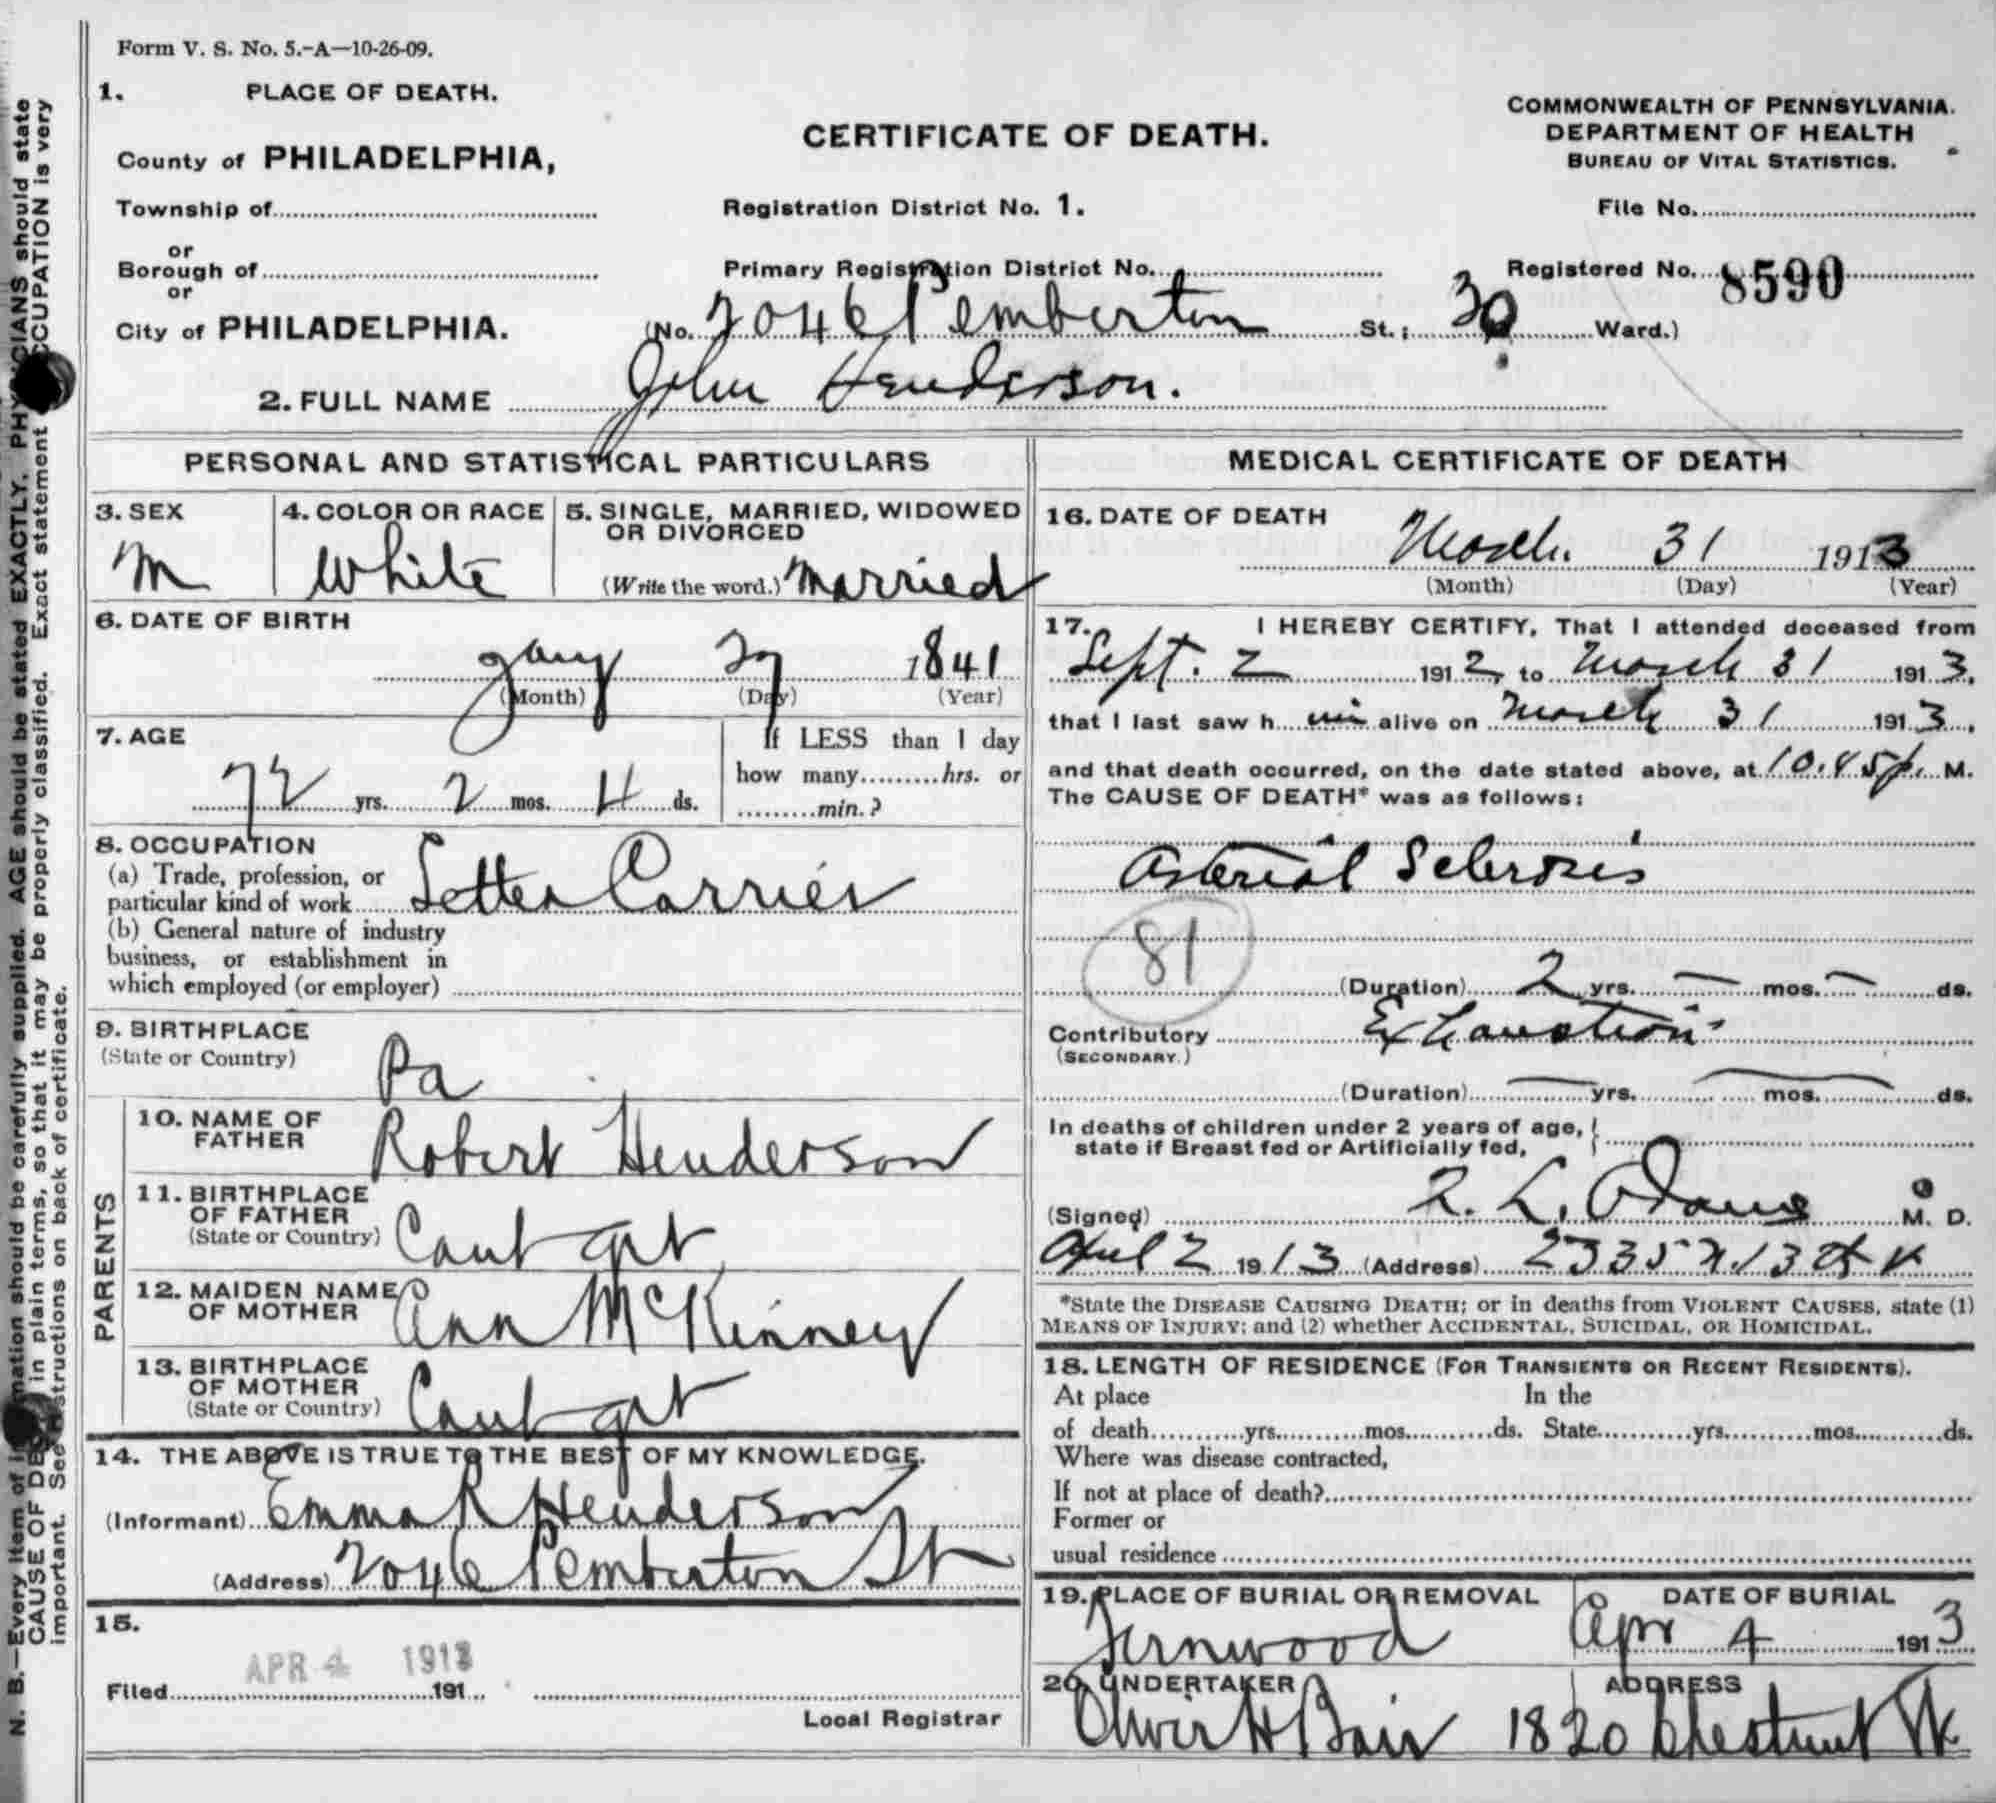 Form V. S. No. 5.-A—10-26-09.
1. PLACE OF DEATH.
County of PHILADELPHIA,
Township of
or
Borough of
or
City of PHILADELPHIA.
CERTIFICATE OF DEATH.
Registration District No. 1.
Primary Registration District No.
(No. 2046 Pemberton St.; 30 Ward.)
COMMONWEALTH OF PENNSYLVANIA.
DEPARTMENT OF HEALTH
BUREAU OF VITAL STATISTICS.
File No.
Registered No. 8590
2. FULL NAME John Henderson.
PERSONAL AND STATISTICAL PARTICULARS
3. SEX
M
4. COLOR OR RACE
White
5. SINGLE, MARRIED, WIDOWED
OR DIVORCED
(Write the word.) Married
6. DATE OF BIRTH
Jany 27 1841
(Month) (Day) (Year)
7. AGE
72 yrs. 2 mos. 4 ds.
If LESS than 1 day
how many hrs. or
min.?
8. OCCUPATION
(a) Trade, profession, or
particular kind of work Letter Carrier
(b) General nature of industry
business, or establishment in
which employed (or employer)
9. BIRTHPLACE
(State or Country)
Pa
PARENTS
10. NAME OF
FATHER
Robert Henderson
11. BIRTHPLACE
OF FATHER
(State or Country)
Cant get
12. MAIDEN NAME
OF MOTHER
Ann McKinney
13. BIRTHPLACE
OF MOTHER
(State or Country)
Cant get
14. THE ABOVE IS TRUE TO THE BEST OF MY KNOWLEDGE.
(Informant) Emma R Henderson
(Address) 2046 Pemberton St
15.
APR 4 1913
Filed 191
Local Registrar
MEDICAL CERTIFICATE OF DEATH
16. DATE OF DEATH
March 31 1913
(Month) (Day) (Year)
17. I HEREBY CERTIFY, That I attended deceased from
Sept. 2 1912, to March 31 1913,
that I last saw h im alive on March 31 1913,
and that death occurred, on the date stated above, at 10.45 p. M.
The CAUSE OF DEATH* was as follows:
Arterial Sclerosis
81
(Duration) 2 yrs. — mos. — ds.
Contributory Exhaustion
(SECONDARY.)
(Duration) — yrs. — mos. ds.
In deaths of children under 2 years of age,
state if Breast fed or Artificially fed,
(Signed) L. Adams M. D.
April 2 1913 (Address) 2335 13 St
*State the DISEASE CAUSING DEATH; or in deaths from VIOLENT CAUSES, state (1)
MEANS OF INJURY; and (2) whether ACCIDENTAL, SUICIDAL, OR HOMICIDAL.
18. LENGTH OF RESIDENCE (FOR TRANSIENTS OR RECENT RESIDENTS).
At place In the
of death yrs. mos. ds. State yrs. mos. ds.
Where was disease contracted,
If not at place of death?
Former or
usual residence
19. PLACE OF BURIAL OR REMOVAL
Fernwood
DATE OF BURIAL
Apr 4 1913
20. UNDERTAKER
Oliver H Bair
ADDRESS
1820 Chestnut St
N. B.—Every item of information should be carefully supplied. AGE should be stated EXACTLY. PHYSICIANS should state
CAUSE OF DEATH in plain terms, so that it may be properly classified. Exact statement OCCUPATION is very
important. See instructions on back of certificate.